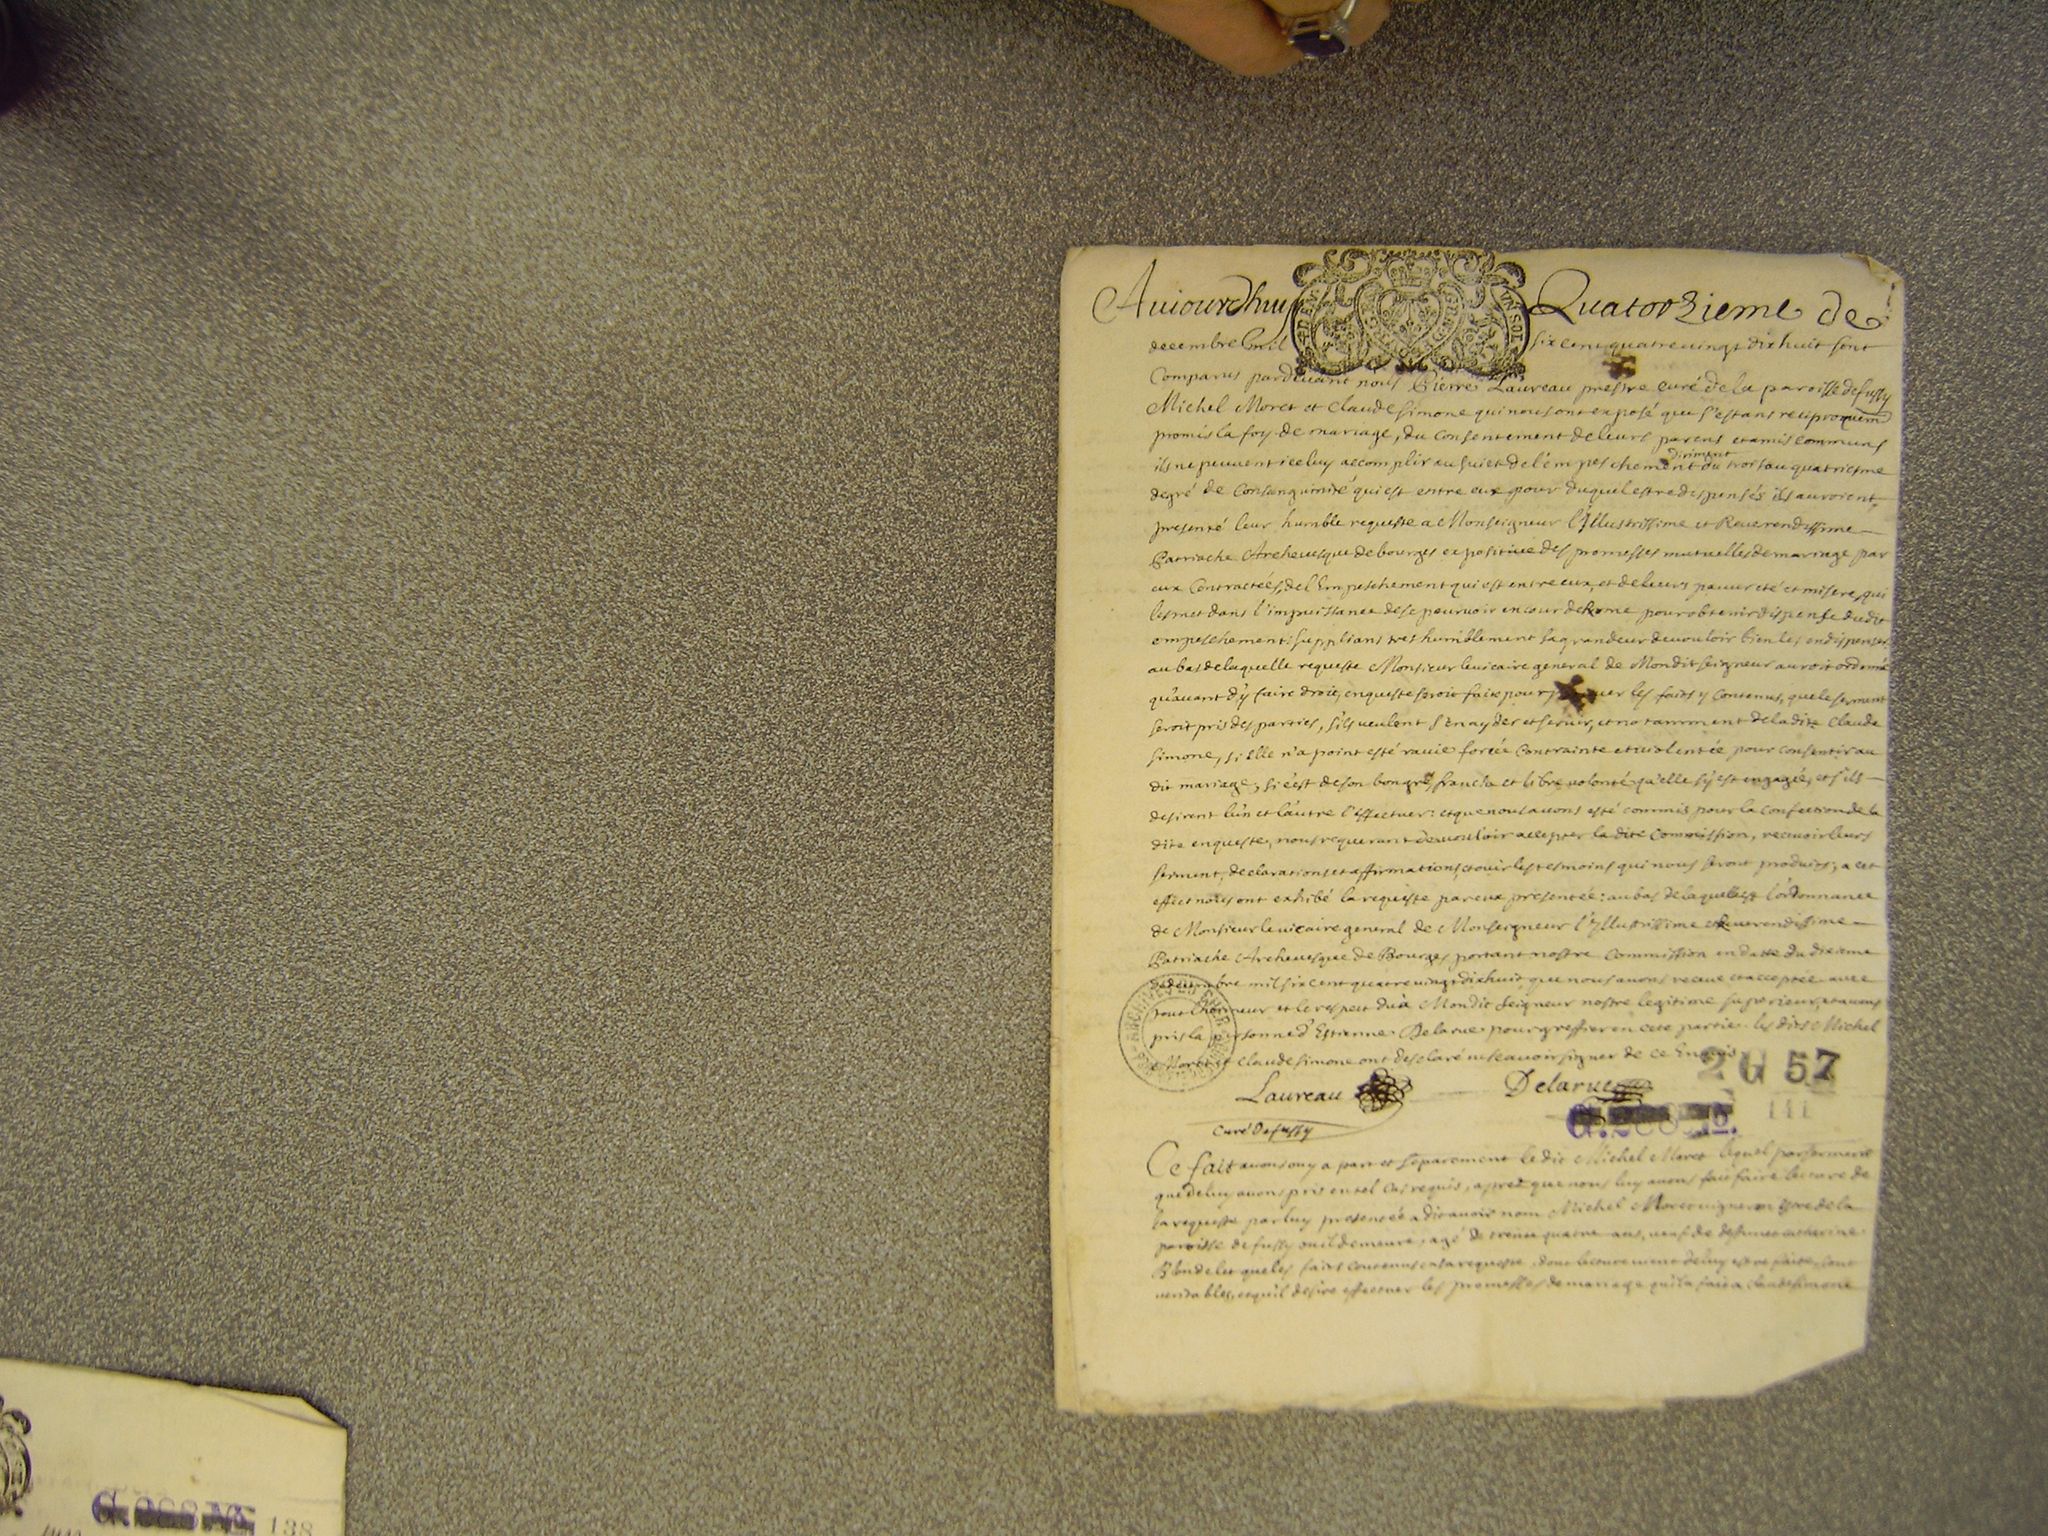 Aujourdhuy Quatorzieme de
decembre mil six cent quatre vingt dix huit sont
Comparus pardevant nous Pierre Laureau prestre curé de la paroisse de fussy
Michel Moret et Claude Simone qui nous ont exposé que s'estans reciproquem
promis la foy de mariage, du consentement de leurs parens et amis communs
ils ne peuvent iceluy accomplir au suiet de l'empeschement dirimant du trois au quatriesme
degré de Consanguinité qui est entre eux pour duquel estre dispensés ils auroient
presenté leur humble requeste a Monseigneur l'Illustrissime et Reverendissime
Patriache Archevesque de bourges expositive des promesses mutuelles de mariage par
eux Contractées, de l'Empeschement qui est entre eux, et de leurs pauvreté et misere, qui
les met dans l'impuissance de se pourvoir en cour de Rome pour obtenir dispense du dit
empeschement: supplians tres humblement sa grandeur de vouloir bien les en dispenser
au bas de laquelle requeste Monsieur le vicaire general de Mondit seigneur auroit ordonné
qu'avant d'y faire droit, enqueste seroit faite pour les faits y Contenus, que le serment
seroit pris des parties, s'ils veulent s'en ayder et servir, et notamment de la dite Claude
Simone, si Elle n'a point esté ravie forcée Contrainte et violentée pour consentir au
dit mariage; si c'est de son bon gré, franche et libre volonté qu'elle s'y est engagée, et s'ils
desirent l'un et l'autre l'effectuer: et que nous avons esté commis pour la Confection de la
dite enqueste, nous requerant de vouloir accepter la dite Commission, recevoir leurs
serment, declarations et affirmations, et ouir les tesmoins qui nous seront produits; a cet
effect nous ont exhibé la requeste par eux presentée: au bas de laquelle est l'ordonnance
de Monsieur le vicaire general de Monseigneur l'Illustrissime et Reverendissime
Patriache Archevesque de Bourges portant nostre Commission en datte du dixieme
decembre mil six cent quatre vingt dix huit, que nous avons receue et acceptée avec
tout l'honneur et le respect du à Mondit Seigneur nostre legitime superieur, et avons
pris la personne d'Estienne Delarue pour greffier en cete partie. les dits Michel
Moret et Claude Simone ont desclaré ne sçavoir signer de ce Enquis
2 G 57
Laureau Delarue
111
curé de fussy
Ce fait avons ouy a part et separement le dit Michel Moret lequel par serment
que de luy avons pris en tel cas requis, aprez que nous luy avons fait faire lecture de
la requeste par luy presentée a dit avoir nom Michel Moret vigneron estre de la
paroisse de fussy ou il demeure, agé de trente quatre ans, veuf de deffunct catherine
Blondelet que les faits contenus en sa requeste, dont lecture vient de luy estre faite, sont
veritables, et qu'il desire effectuer les promesses de mariage qu'il a fait a Claude Simone
138